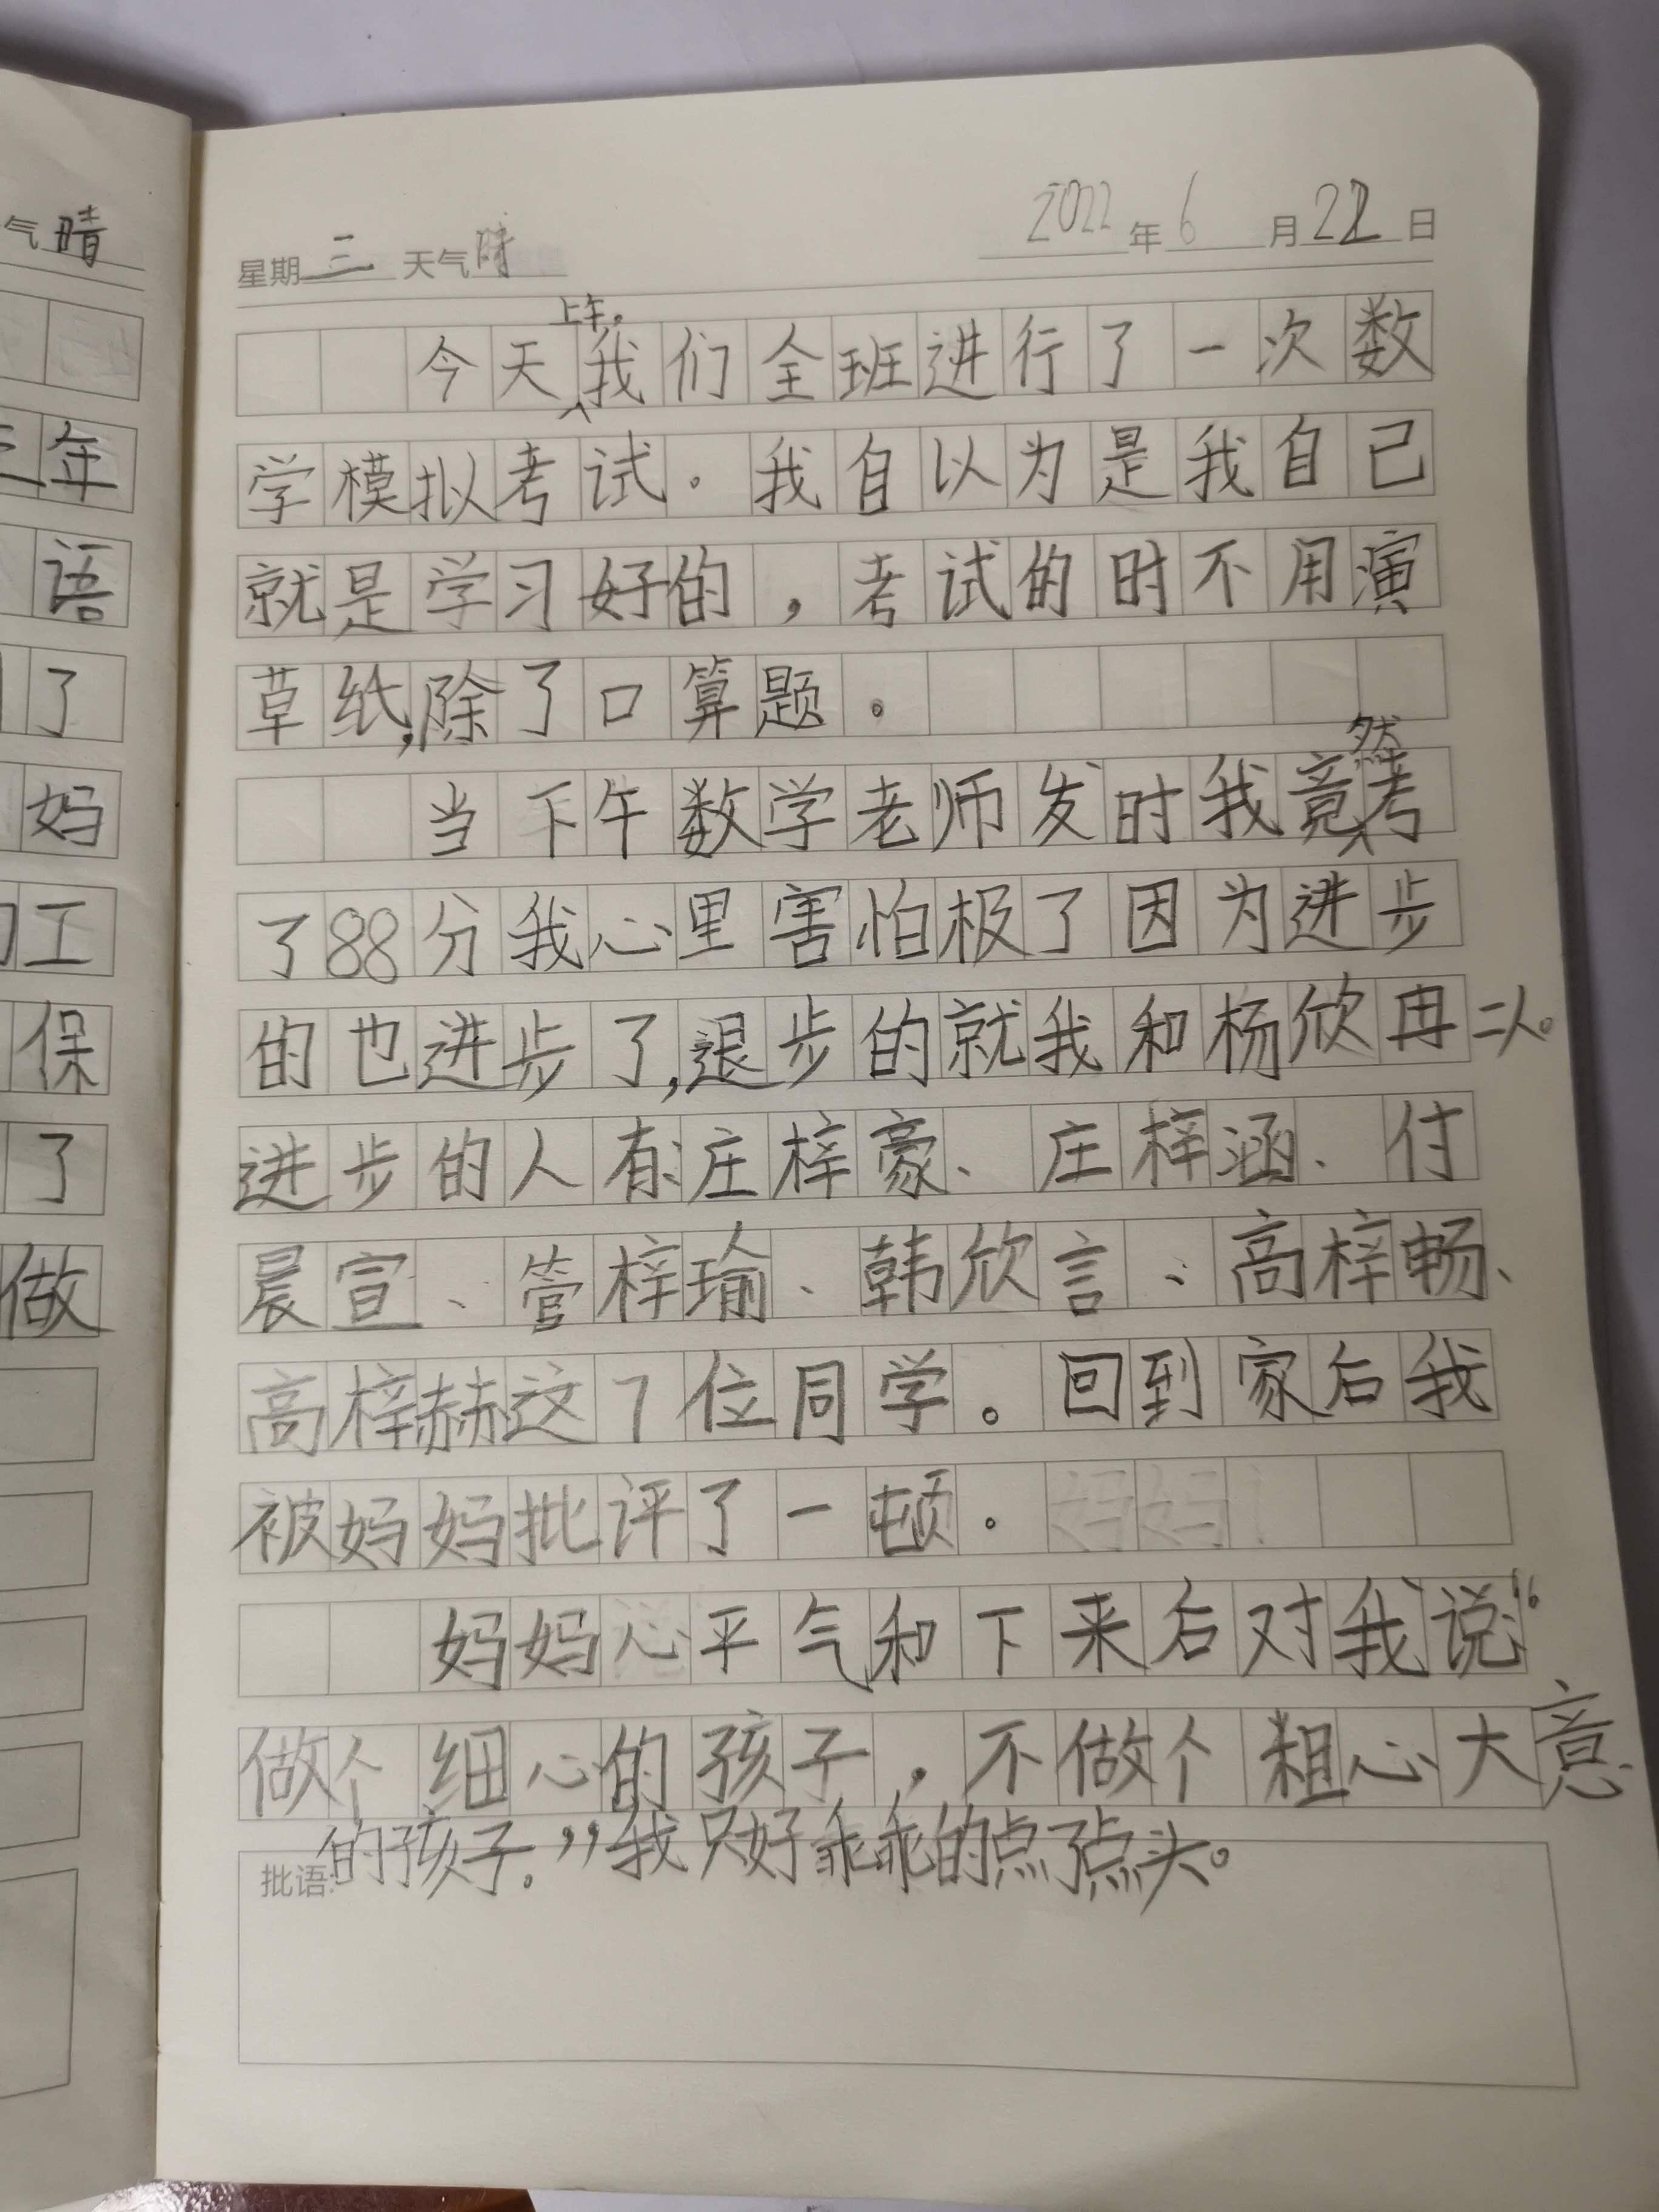 气 晴
年
语
了
妈
工
保
了
做
星期 三 天气 晴 2022 年 6 月 22 日
今天上午,我们全班进行了一次数
学模拟考试。我自以为是我自己
就是学习好的,考试的时不用演
草纸,除了口算题。
当下午数学老师发时我竟然考
了88分我心里害怕极了因为进步
的也进步了,退步的就我和杨欣冉二人。
进步的人有:庄梓豪、庄梓涵、付
晨宣、管梓瑜、韩欣言、高梓畅、
高梓赫这7位同学。回到家后我
被妈妈批评了一顿。
妈妈心平气和下来后对我说:“
做个细心的孩子,不做个粗心大意
的孩子。”我只好乖乖的点了点头。
批语: